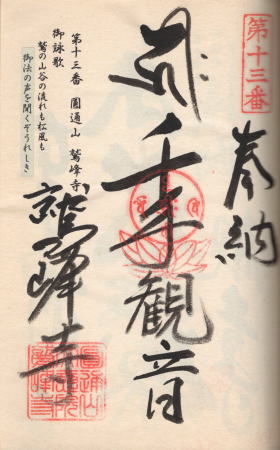 第十三番
奉納
千手観音
鷲峰寺
第十三番 圓通山 鷲峰寺
御詠歌
鷲の山谷の流れも松風も
御法の声を聞くぞうれしき